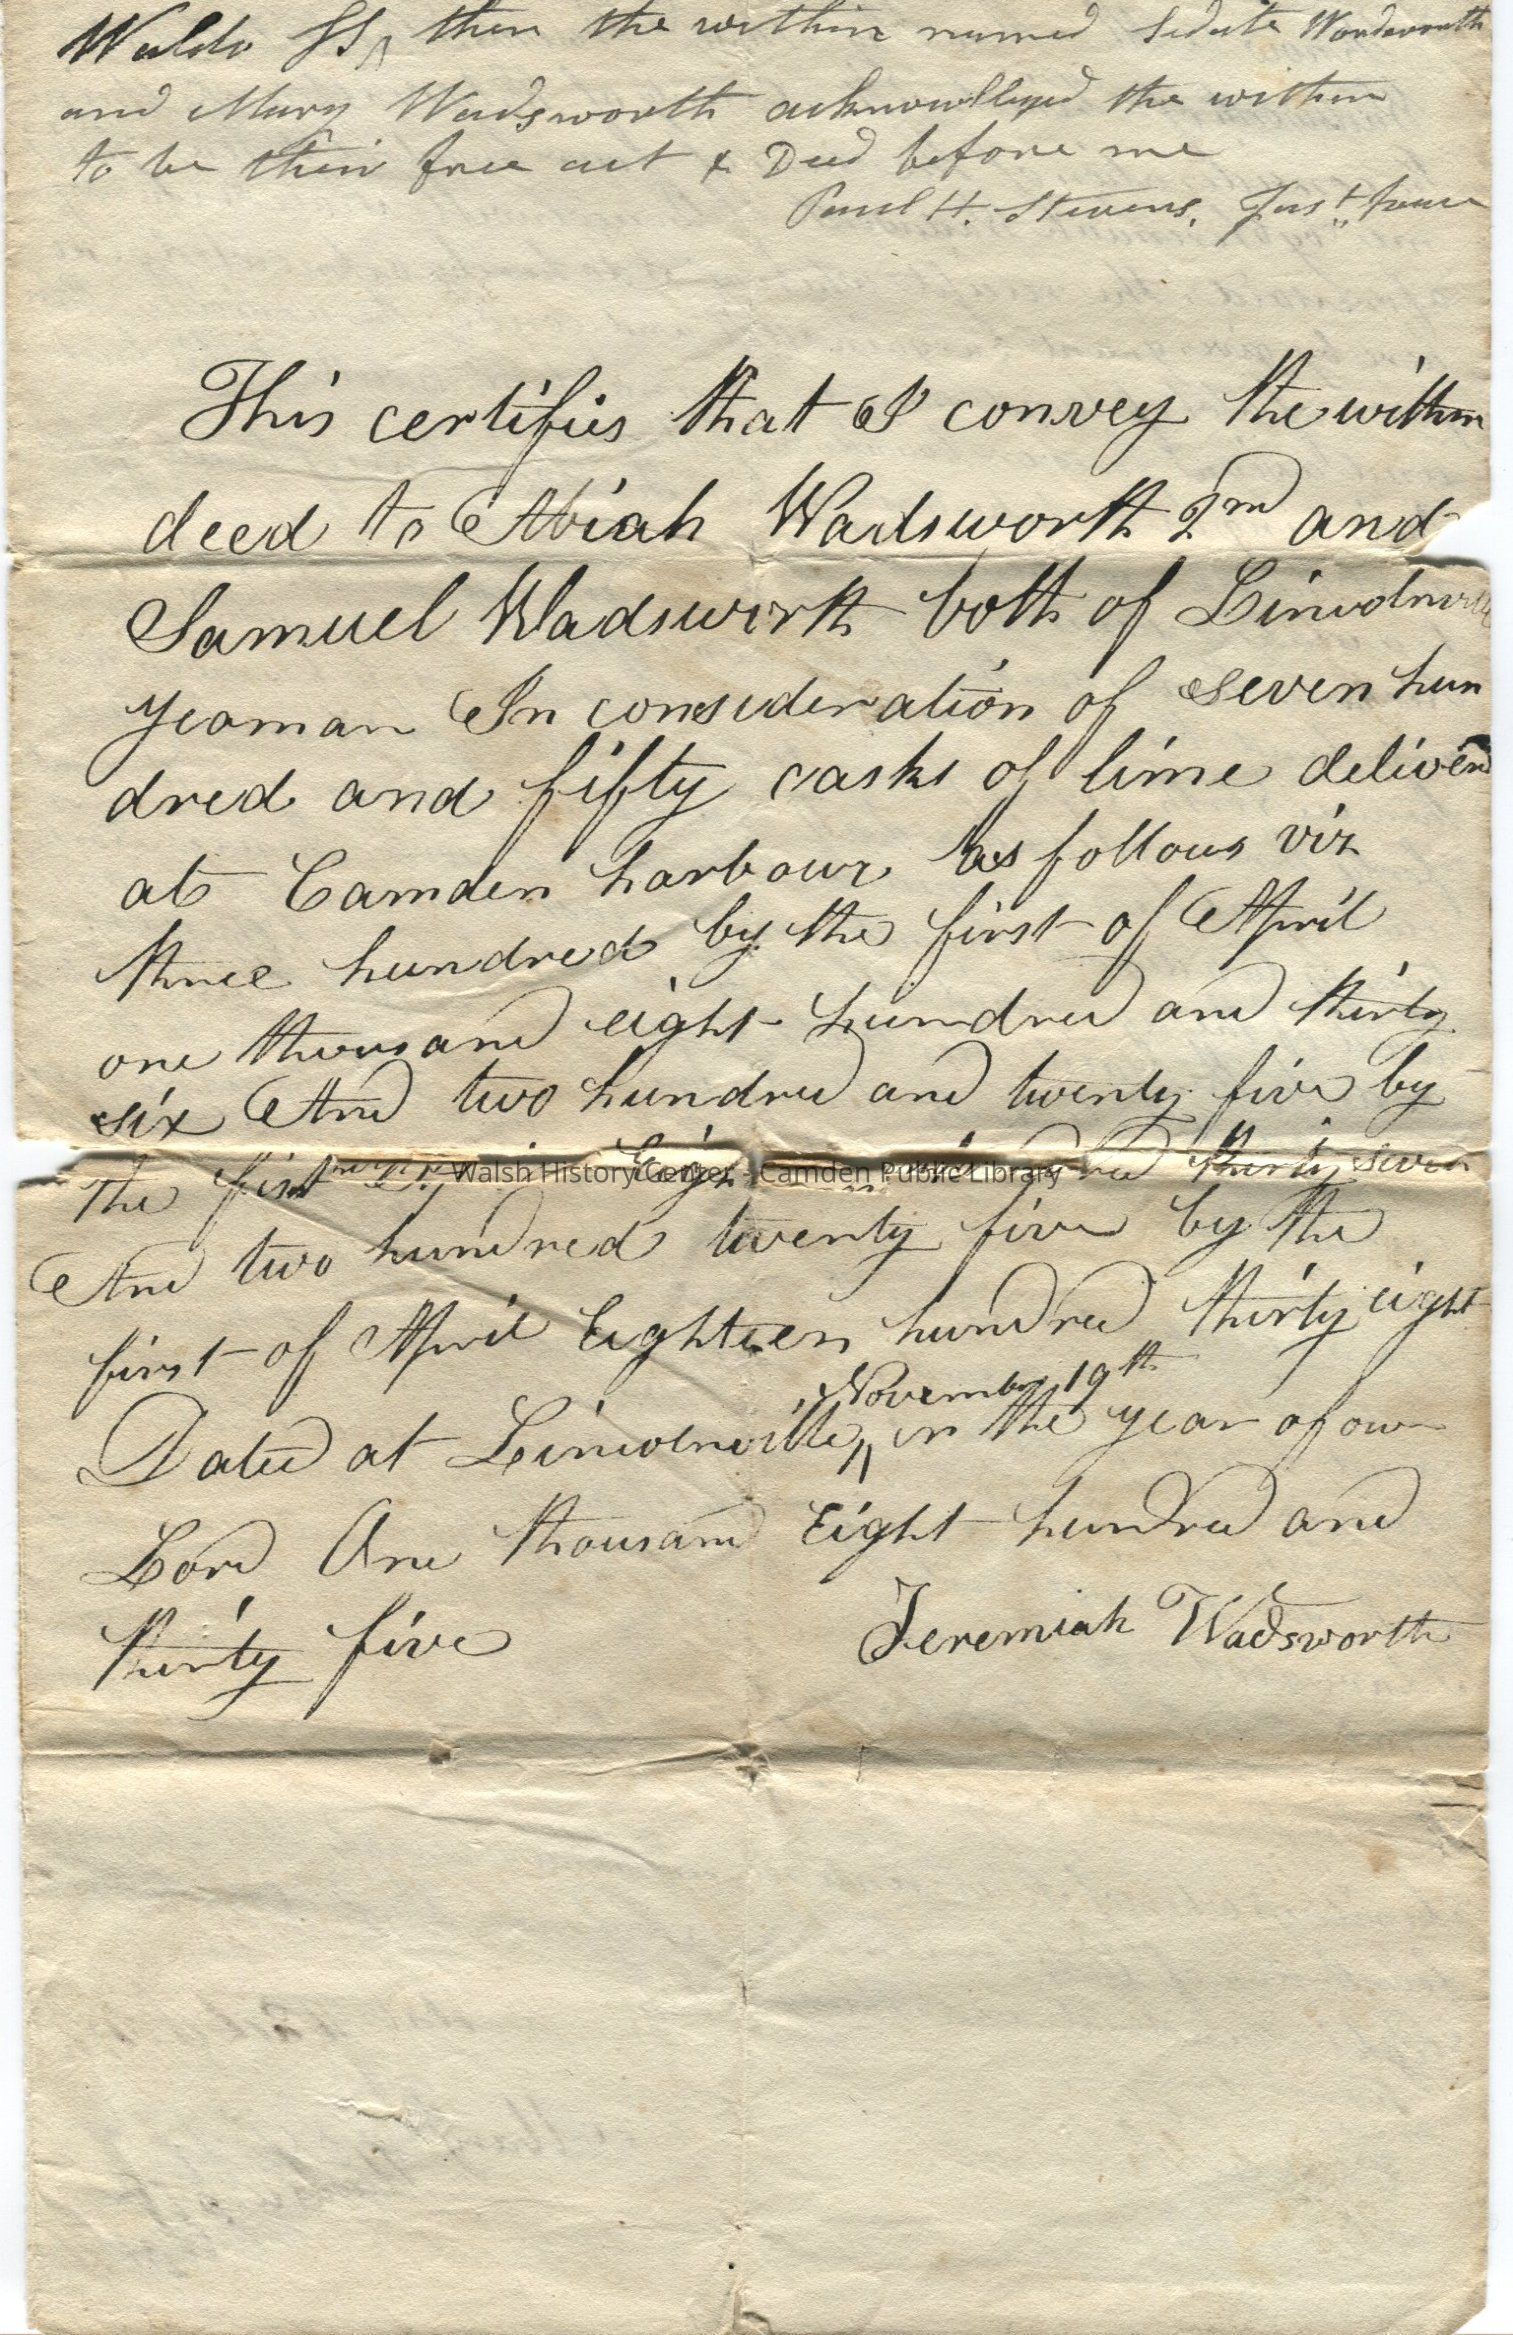 Waldo SS, then the within named Sedate Wordsworth
and Mary Wadsworth acknowlleged the within
to be thier free act & Deed before me
Paul H. Stevens, Just. Peace
This certifies that I convey the within
deed to Abiah Wadsworth 2nd and
Samuel Wadsworth both of Lincolnville
yeoman In consideration of seven hun
dred and fifty casks of lime deliverd
at Camden harbour as follows viz
three hundred by the first of April
one thousand eight hundred and thirty
six And two hundred and twenty five by
the first thirty seven
Walsh History Center - Camden Public Library
And two hundred twenty five by the
first of April Eighteen hundred thirty eight
November 19th
Dated at Lincolnville, in the year of our
Lord One thousand Eight hundred and
thirty five
Jeremiah Wadsworth